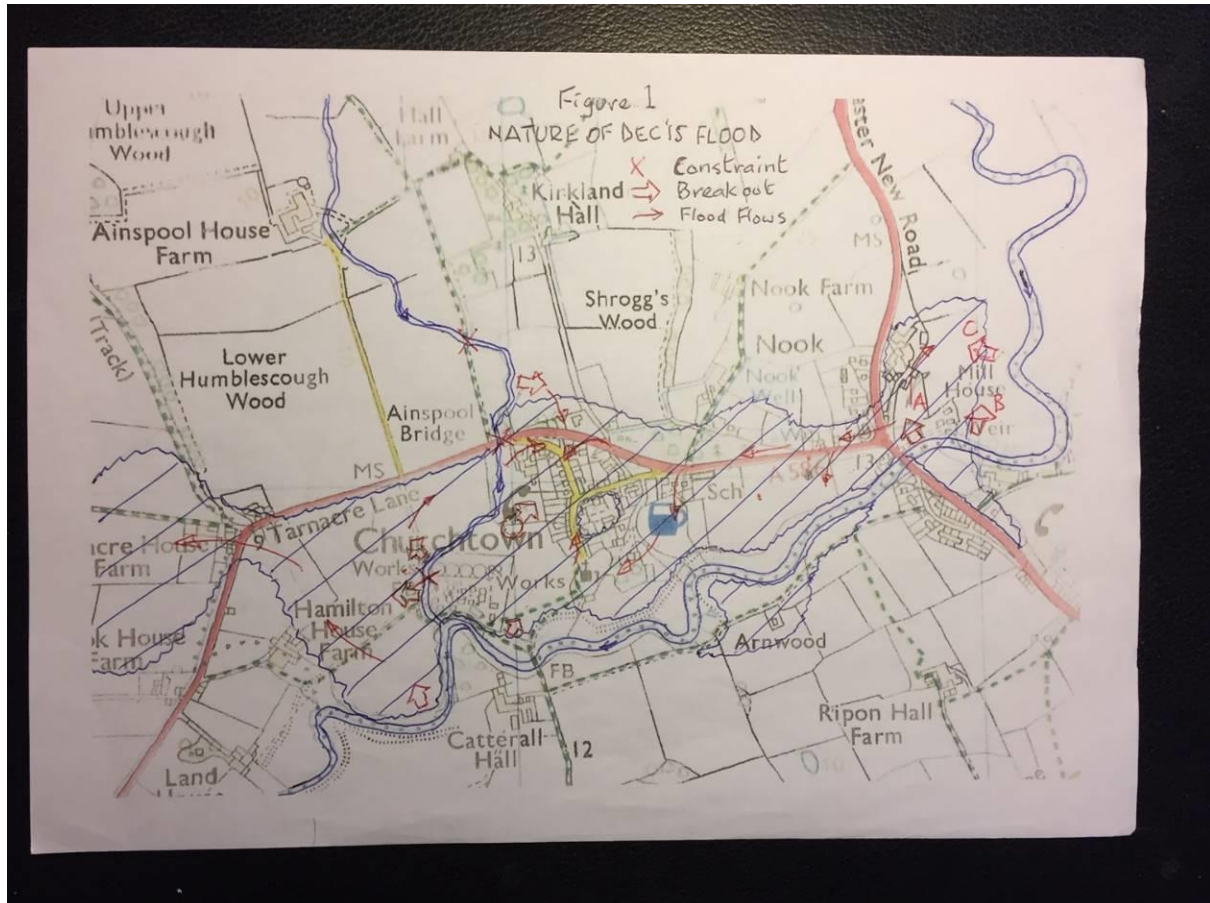 Figure 1
NATURE OF DEC'15 FLOOD
X Constraint
Breakout
Flood Flows
Upper
umblescough
Wood
Hall
Farm
Kirkland
Hall
aster New Road
MS
Ainspool House
Farm
13
Shrogg's
Wood
Nook Farm
Nook
Nook
Well
C
Mill
House
A
B
Weir
(Track)
Lower
Humblescough
Wood
Ainspool
Bridge
MS
13
Sch
Tarnacre Lane
Churchtown
acre House
Farm
Works
Works
Hamilton
House
Farm
k House
Farm
FB
Arnwood
Ripon Hall
Farm
Catterall
Hall
12
Land